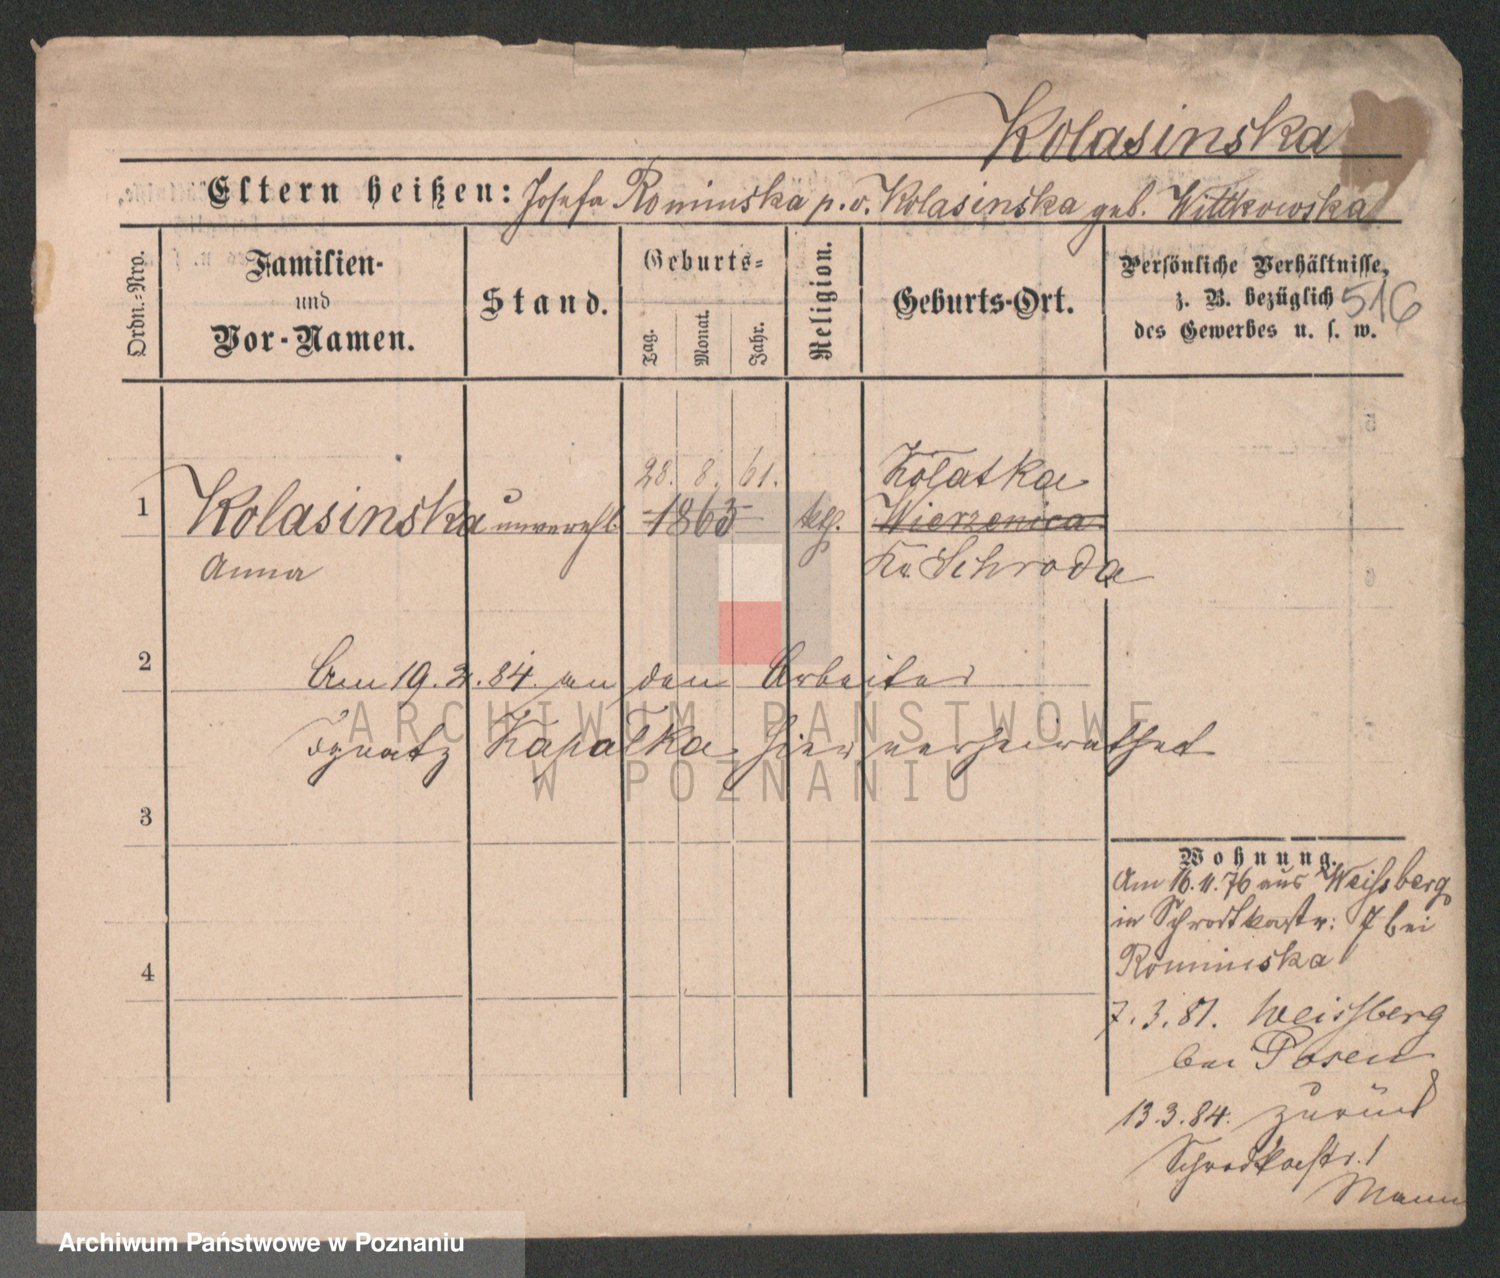 Kolasinska
Eltern heißen: Josefa Rominska p. v. Kolasinska geb. Wittkowska
Ordn.-Nro.
Familien-
und
Vor-Namen.
Stand.
Geburts-
Tag.
Monat.
Jahr.
Religion.
Geburts-Ort.
Persönliche Verhältnisse,
z. B. bezüglich
des Gewerbes u. s. w.
516
28. 8. 61.
Kolatka
1 Kolasinska unverehl. 1863 kt. Wierzenica
Anna
Kr. Schroda
2
Am 19. 2. 84. an den Arbeiter
Ignatz Kapalka hier verheirathet
3
4
Wohnung.
Am 16. 11. 76 aus Weissberg
in Schrodkastr: 7 bei
Rominska
7. 3. 81. Weissberg
bei Posen
13. 3. 84. zurück
Schrodkastr. 1
Mann
ARCHIWUM PAŃSTWOWE
W POZNANIU
Archiwum Państwowe w Poznaniu